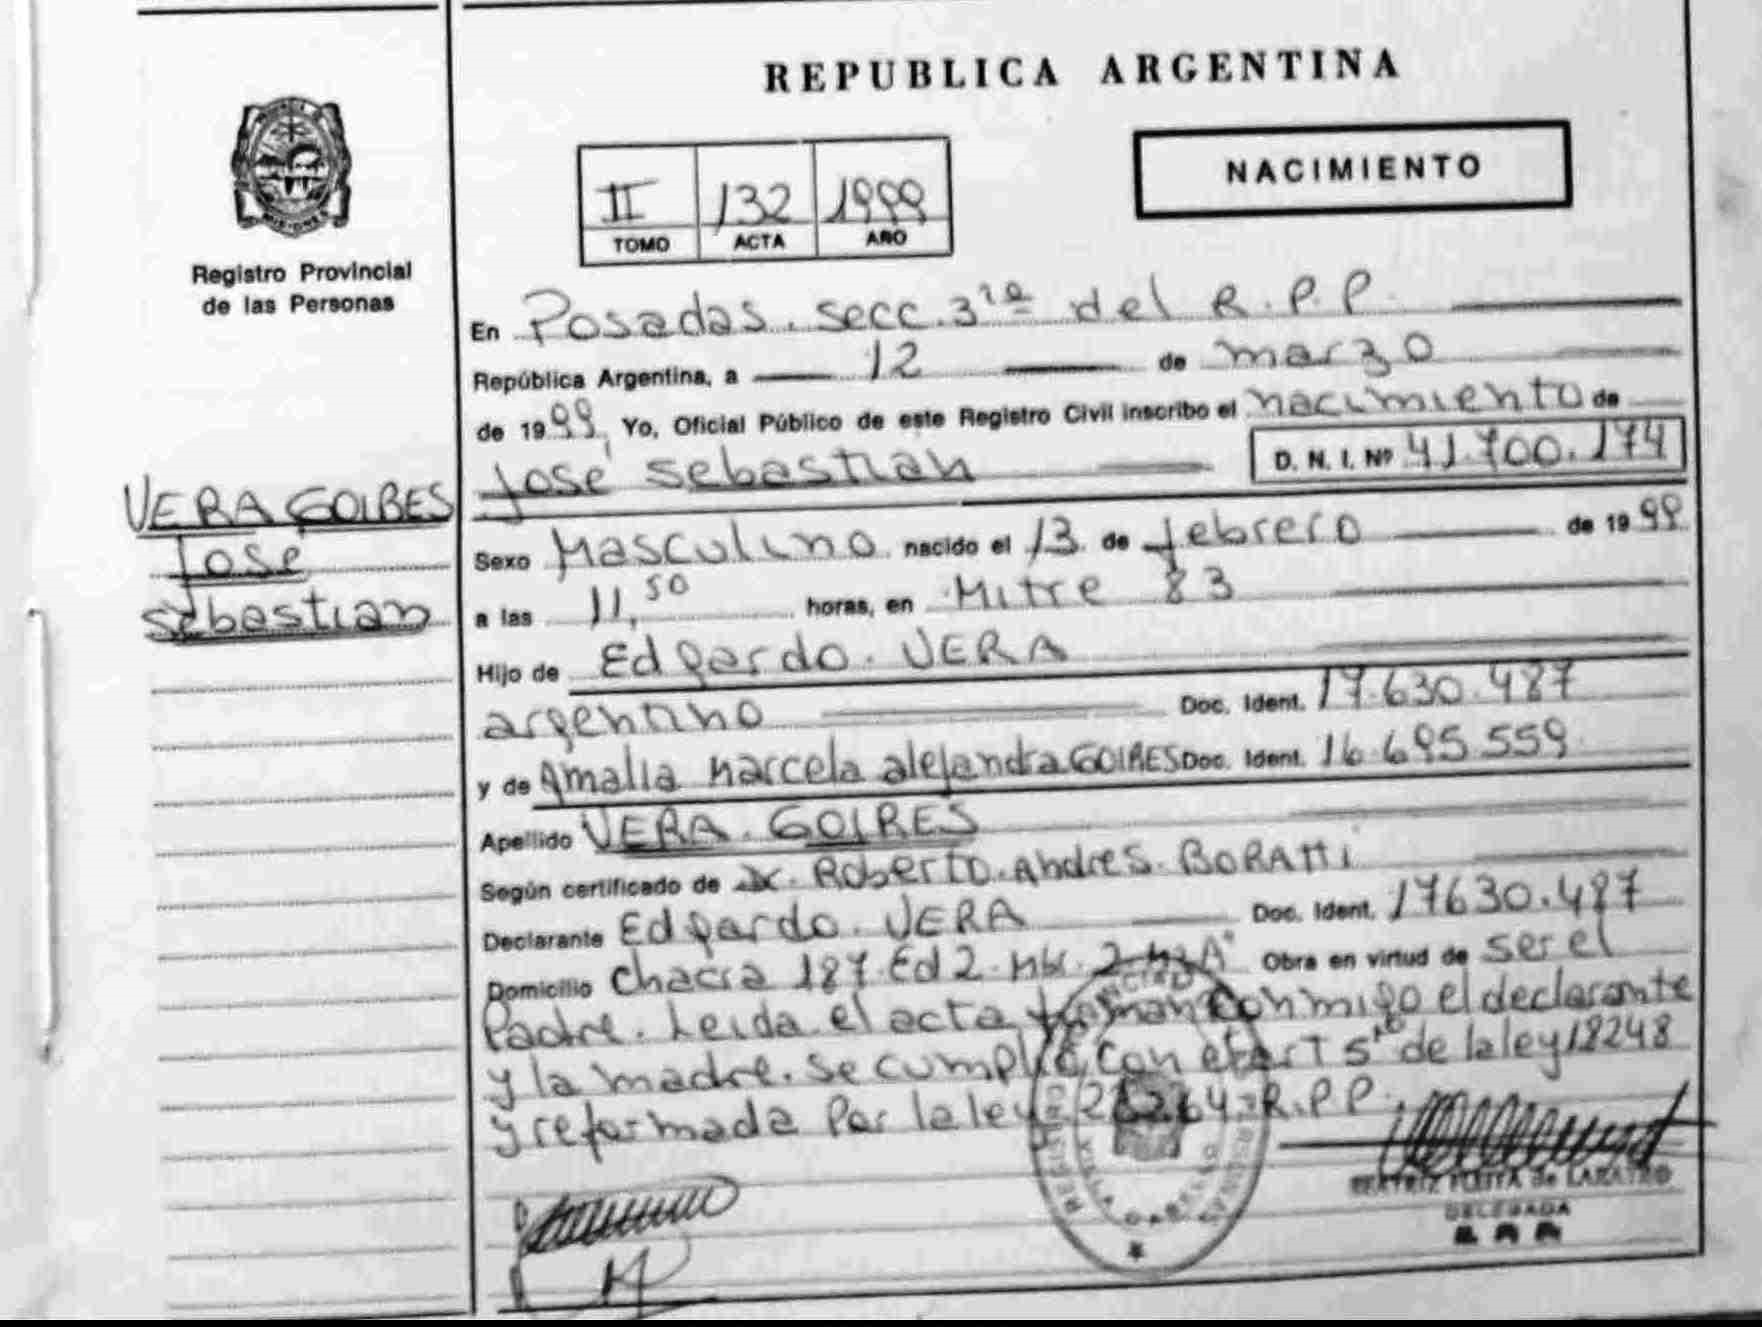 REPUBLICA ARGENTINA
NACIMIENTO
II 132 1999
TOMO ACTA AÑO
Registro Provincial
de las Personas
En Posadas. secc. 3ra del R.P.P.
República Argentina, a 12 de marzo
de 1999, Yo, Oficial Público de este Registro Civil inscribo el nacimiento de
José Sebastian D. N. I. Nº 41.700.174
VERA GOIRES
José
Sebastian
Sexo Masculino nacido el 13 de febrero de 1999
a las 11,50 horas, en Mitre 83
Hijo de Edgardo. VERA
argentino Doc. Ident. 17.630.487
y de Amalia Marcela alejandra GOIRES Doc. Ident. 16.695.559
Apellido VERA. GOIRES
Según certificado de Dr. Roberto. Andres. BORATTI
Declarante Edgardo. VERA Doc. Ident. 17630.487
Domicilio Chacra 187. Ed 2. Obra en virtud de ser el
Padre. Leida el acta firman conmigo el declarante
y la madre. Se cumplió con el art 5to de la ley 18248
y reformada Por la ley R.P.P.
BEATRIZ de
DELEGADA